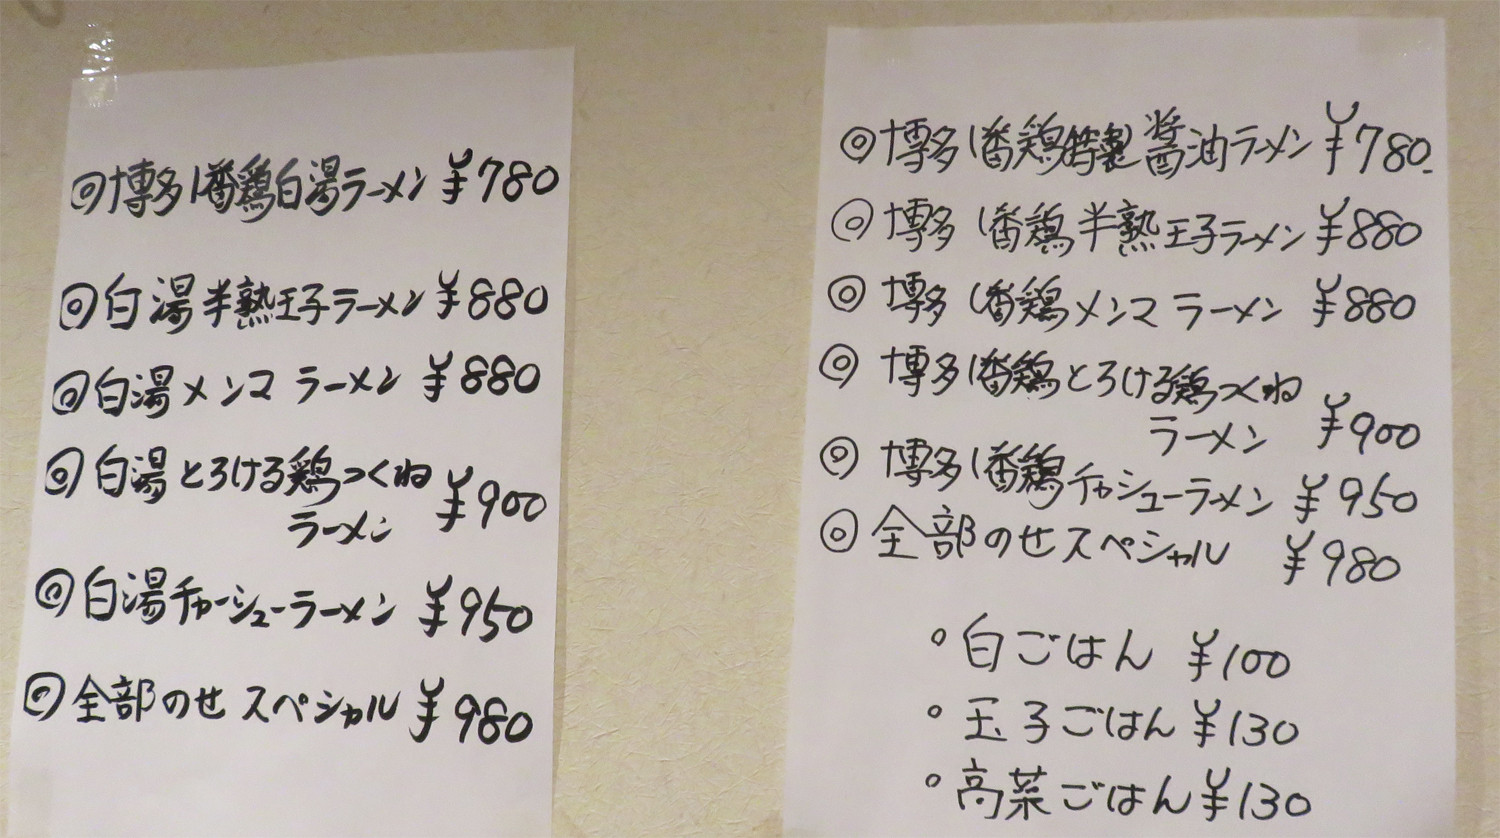 ◎博多1番鶏白湯ラーメン ¥780
◎白湯半熟王子ラーメン ¥880
◎白湯メンマ ラーメン ¥880
◎白湯とろける鶏つくね
ラーメン ¥900
◎白湯チャーシューラーメン ¥950
◎全部のせ スペシャル ¥980
◎博多1番鶏特製醤油ラーメン ¥780
◎博多1番鶏半熟王子ラーメン ¥880
◎博多1番鶏メンマ ラーメン ¥880
◎博多1番鶏とろける鶏つくね
ラーメン ¥900
◎博多1番鶏チャーシューラーメン ¥950
◎全部のせスペシャル ¥980
・白ごはん ¥100
・玉子ごはん ¥130
・高菜ごはん ¥130